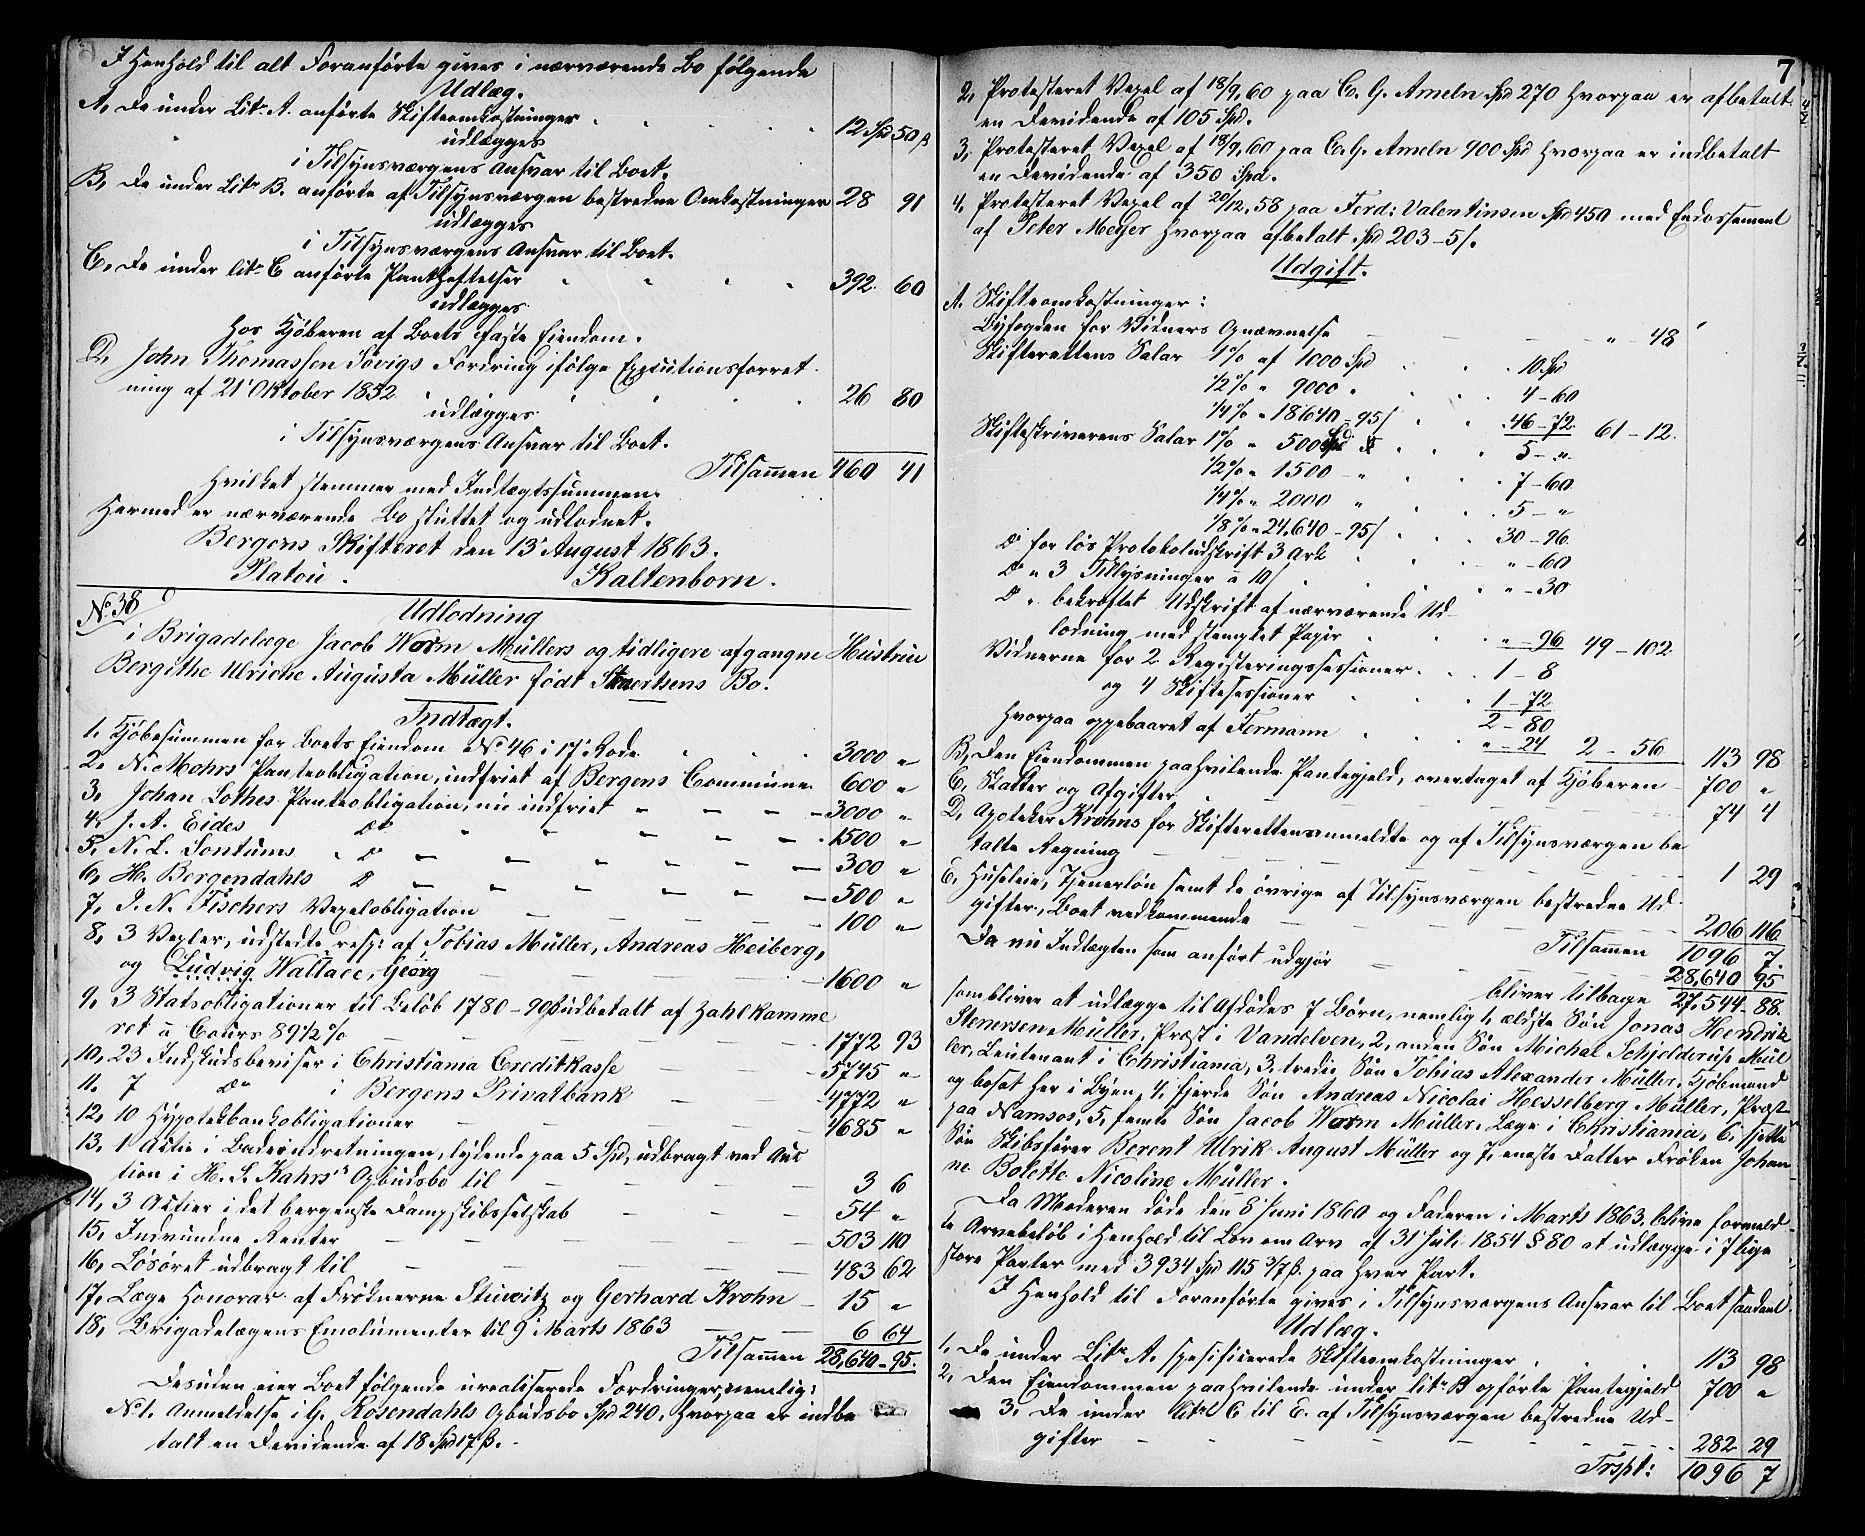 I Henhold til alt Foranførte gives i nærværende Bo følgende
Udlæg.
A, De under Litr. A. anførte Skifteomkostninger 12 Spd 50 ß
udlægges
i Tilsynsværgens Ansvar til Boet.
B, De under Litr B. anførte af Tilsynsværgen bestredne Omkostninger 28 91
udlægges
i Tilsynsværgens Ansvar til Boet.
C, De under litr C anførte Pantheftelser 392. 60
udlægges
hos Kjøberen af Boets faste Eiendom.
D, John Thomassen Søvigs Fordring ifølge Executionsforret
ning af 21 Oktober 1852 26 80
udlægges
i Tilsynsværgens Ansvar til Boet.
Tilsammen 460 41
hvilket stemmer med Indtægtssummen.
Hermed er nærværende Bo sluttet og udlodnet.
Bergens Skifteret den 13 August 1863.
Platou. Kaltenborn.
No. 38 Udlodning
i Brigadelæge Jacob Worm Müllers og tidligere afgangne Hustrue
Bergithe Ulriche Augusta Müller født Stenersens Bo.
Indtægt.
1. Kjøbesummen for Boets Eiendom No 46 i 17 Rode 3000 "
2. N. Mohrs Panteobligation, indfriet af Bergens Commune 600 "
3, Johan Lothes Panteobligation, nu indfriet 3000 "
4. J. A. Eides Do 1500 "
5, N. L. Sontums Do 300 "
6, H. Bergendahls Do 500 "
7, J. N. Fischers Vexelobligation 100 "
8, 3 Vexler, udstedte resp: af Tobias Müller, Andreas Heiberg,
og Ludvig Wallace, Georg 1600 "
9, 3 Statsobligationer til Beløb 1780-90ß udbetalt af Zahlkamme
ret a Cours 89½ % 1772 93
10, 23 Indskudsbeviser i Christiania Creditkasse 5745 "
11. 7 Do i Bergens Privatbank 4772 "
12, 10 Hypotekbankobligationer 4685 "
13, 1 Actie i Badeindretningen, lydende paa 5 Spd, udbragt ved Auc
tion i H. S. Kahrs's Opbudsbo til 3 6
14, 3 Actier i det bergenske Dampskibsselskab 54 "
15, Indvundne Renter 503 110
16, Løsøret udbragt til 483 62
17, Læge Honorar af Frøknerne Stuwitz og Gerhard Krohn 15 "
18, Brigadelægens Emolumenter til 9 Marts 1863 6 64
Tilsammen 28,640-95.
Desuden eier Boet følgende urealiserede Fordringer, nemlig:
No 1. Anmeldelse i G. Rosendahls Opbudsbo Spd 240, hvorpaa er indbe
talt en Devidende af 18 Spd 17 ß.
7
2, Protesteret Vexel af 18/9, 60 paa C. G. Ameln Spd 270 hvorpaa er afbetalt
en Devidende af 105 Spd.
3, Protesteret Vexel af 18/9, 60 paa C. G. Ameln 900 Spd hvorpaa er indbetalt
en Devidende af 350 Spd.
4, Protesteret Vexel af 20/12, 58 paa Ferd: Valentinsen Spd 450 med Endossement
af Peter Meyer hvorpaa afbetalt Spd 203-5ß.
Udgift.
A. Skifteomkostninger:
Byfogden for Vidners Opnævnelse " - 48
Skifterettens Salar 1% af 1000 Spd 10 Spd
½% " 9000 " 4-60
¼% " 18640-95ß 46-72. 61-12.
Skifteskriverens Salar 1% " 500 Spd 5 - "
½% " 1500 " 7-60
¼% " 2000 " 5 - "
1/8 % " 24,640-95ß 30-96
Do for løs Protokoludskrift 3 Ark " - 60
Do " 3 Tillysninger a 10ß " - 30
Do " bekræftet Udskrift af nærværende Ud-
lodning med stemplet Papir " - 96 49-102
Vidnerne for 2 Registeringssessioner 1-8
og 4 Skiftesessioner 1-72
2-80
hvorpaa oppebaaret af Formann " - 24 2-56 113 98
B, Den Eiendommen paahvilende Pantegjeld, overtaget af Kjøberen 700 "
C, Skatter og Afgifter 74 4
D, Apotheker Krohns for Skifteretten anmeldte og af Tilsynsværgen be
talte Regning 1 29
E, Husleie, Tjenerløn samt de øvrige af Tilsynsværgen bestredne Ud-
gifter, Boet vedkommende 206 116
Tilsammen 1096 7.
Da nu Indtægten som anført udgjør 28,640 95
bliver tilbage 27,544-88.
som bliver at udlægge til Afdødes 7 Børn, nemlig 1, ældste Søn Jonas Hendrik
Stenersen Müller, Præst i Vandelven, 2, anden Søn Michal Schjelderup Mül
ler, Leutenant i Christiania, 3. tredie Søn Tobias Alexander Müller, Kjøbmand
og bosat her i Byen, 4, fjerde Søn Andreas Nicolai Hesselberg Müller, Præst
paa Namsos, 5, femte Søn Jacob Worm Müller, Læge i Christiania, 6, sjette
Søn Skibsfører Berent Ulrik August Müller og 7, eneste Datter Frøken Johan
ne Bolette Nicoline Müller.
Da Moderen døde den 8 Juni 1860 og Faderen i Marts 1863, blive formeld
te Arvebeløb i Henhold til Lov om Arv af 31 Juli 1854 § 80 at udlægge i 7 lige
store Parter med 3934 Spd 115 3/7 ß. paa hver Part.
I Henhold til Foranførte gives i Tilsynsværgens Ansvar til Boet saadant
Udlæg.
1. De under Litr. A. spesificerede Skifteomkostninger 113 98
2, Den Eiendommen paahvilende under litr B opførte Pantegjeld 700 "
3. De under Litr C til E. af Tilsynsværgen bestredne Ud-
gifter 282 29
Trspt: 1096 7